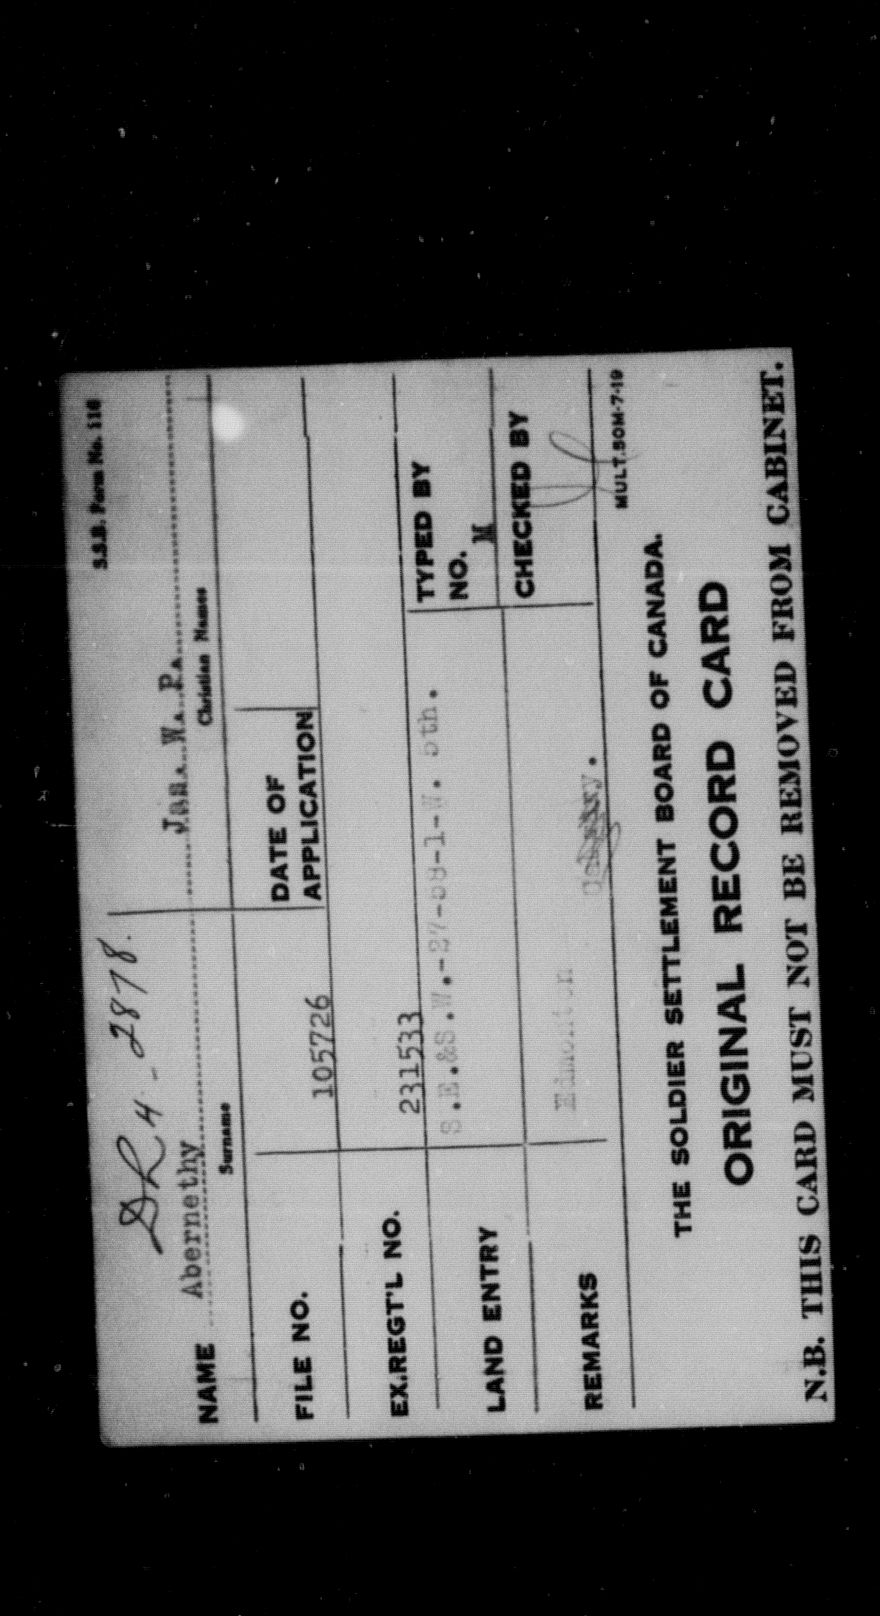 S.S.B. Form No. 116
DR 4-2878.
NAME Abernethy Jas. W. P.
Surname Christian Names
FILE NO. 105726 DATE OF APPLICATION
EX.REGT'L NO. 231533
LAND ENTRY S.E.&S.W.-27-59-1-W. 5th.
TYPED BY NO. M
CHECKED BY
REMARKS Edmonton Calgary.
MULT.50M-7-19
THE SOLDIER SETTLEMENT BOARD OF CANADA.
ORIGINAL RECORD CARD
N.B. THIS CARD MUST NOT BE REMOVED FROM CABINET.